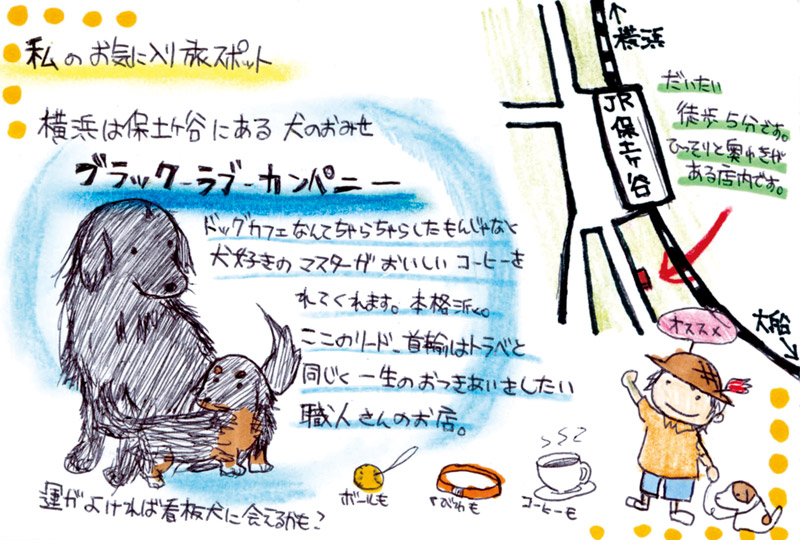 私のお気に入り旅スポット
横浜は保土ヶ谷にある犬のおみせ
ブラック-ラブ-カンパニー
ドッグカフェなんてちゃらちゃらしたもんじゃなく
犬好きのマスターがおいしいコーヒーを
れてくれます。本格派。
ここのリード、首輪はトラベと
同じく一生のおつきあいをしたい
職人さんのお店。
運がよければ看板犬に会えるかも?
ボールも
くびわも
コーヒーも
↑
横浜
JR保土ヶ谷
だいたい
徒歩5分です。
ひっそりと奥行きが
ある店内です。
オススメ
大船